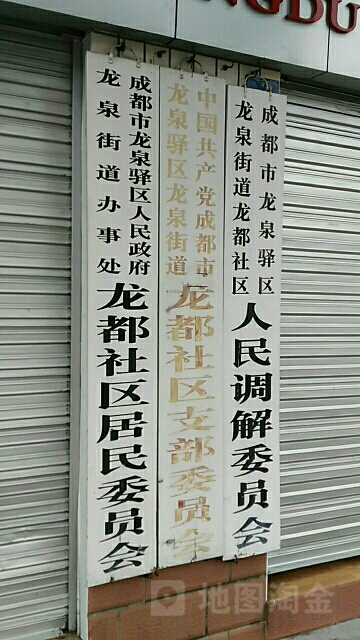 NGDU
成都市龙泉驿区人民政府
龙泉街道办事处
龙都社区居民委员会
中国共产党成都市
龙泉驿区龙泉街道
龙都社区支部委员会
成都市龙泉驿区
龙泉街道龙都社区
人民调解委员会
地图淘金